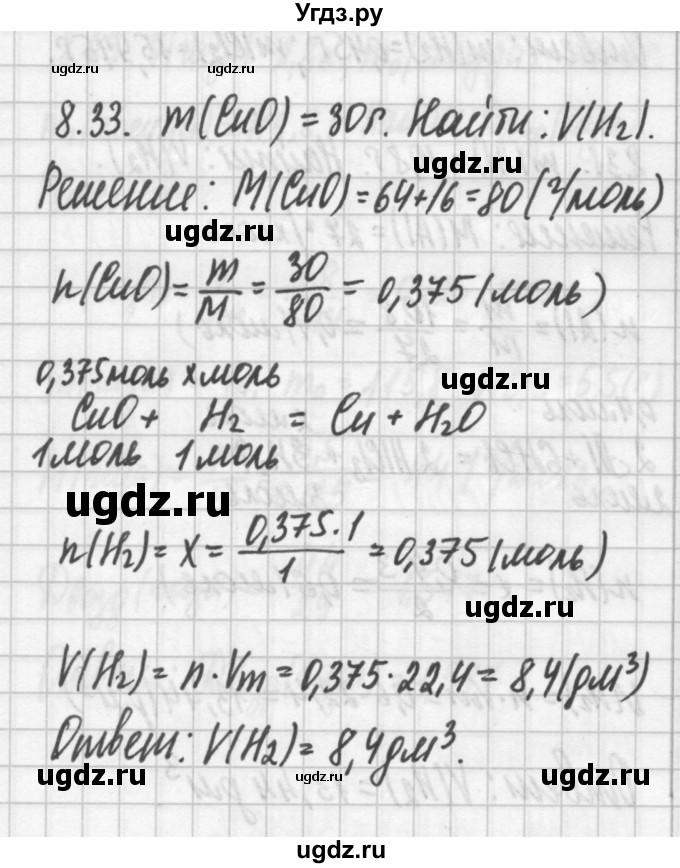 Угдз.ру
ugdz.ru ugdz.ru ugdz.ru
8.33. m(CuO) = 30г. Найти: V(H₂).
ugdz.ru
Решение: M(CuO) = 64+16 = 80 (г/моль)
ugdz.ru
n(CuO) = m/M = 30/80 = 0,375 (моль)
ugdz.ru
0,375 моль x моль
CuO + H₂ = Cu + H₂O
1 моль 1 моль
ugdz.ru
n(H₂) = x = 0,375·1/1 = 0,375 (моль)
ugdz.ru
V(H₂) = n·Vm = 0,375·22,4 = 8,4 (дм³)
ugdz.ru
Ответ: V(H₂) = 8,4 дм³.
ugdz.ru ugdz.ru ugdz.ru
ugdz.ru